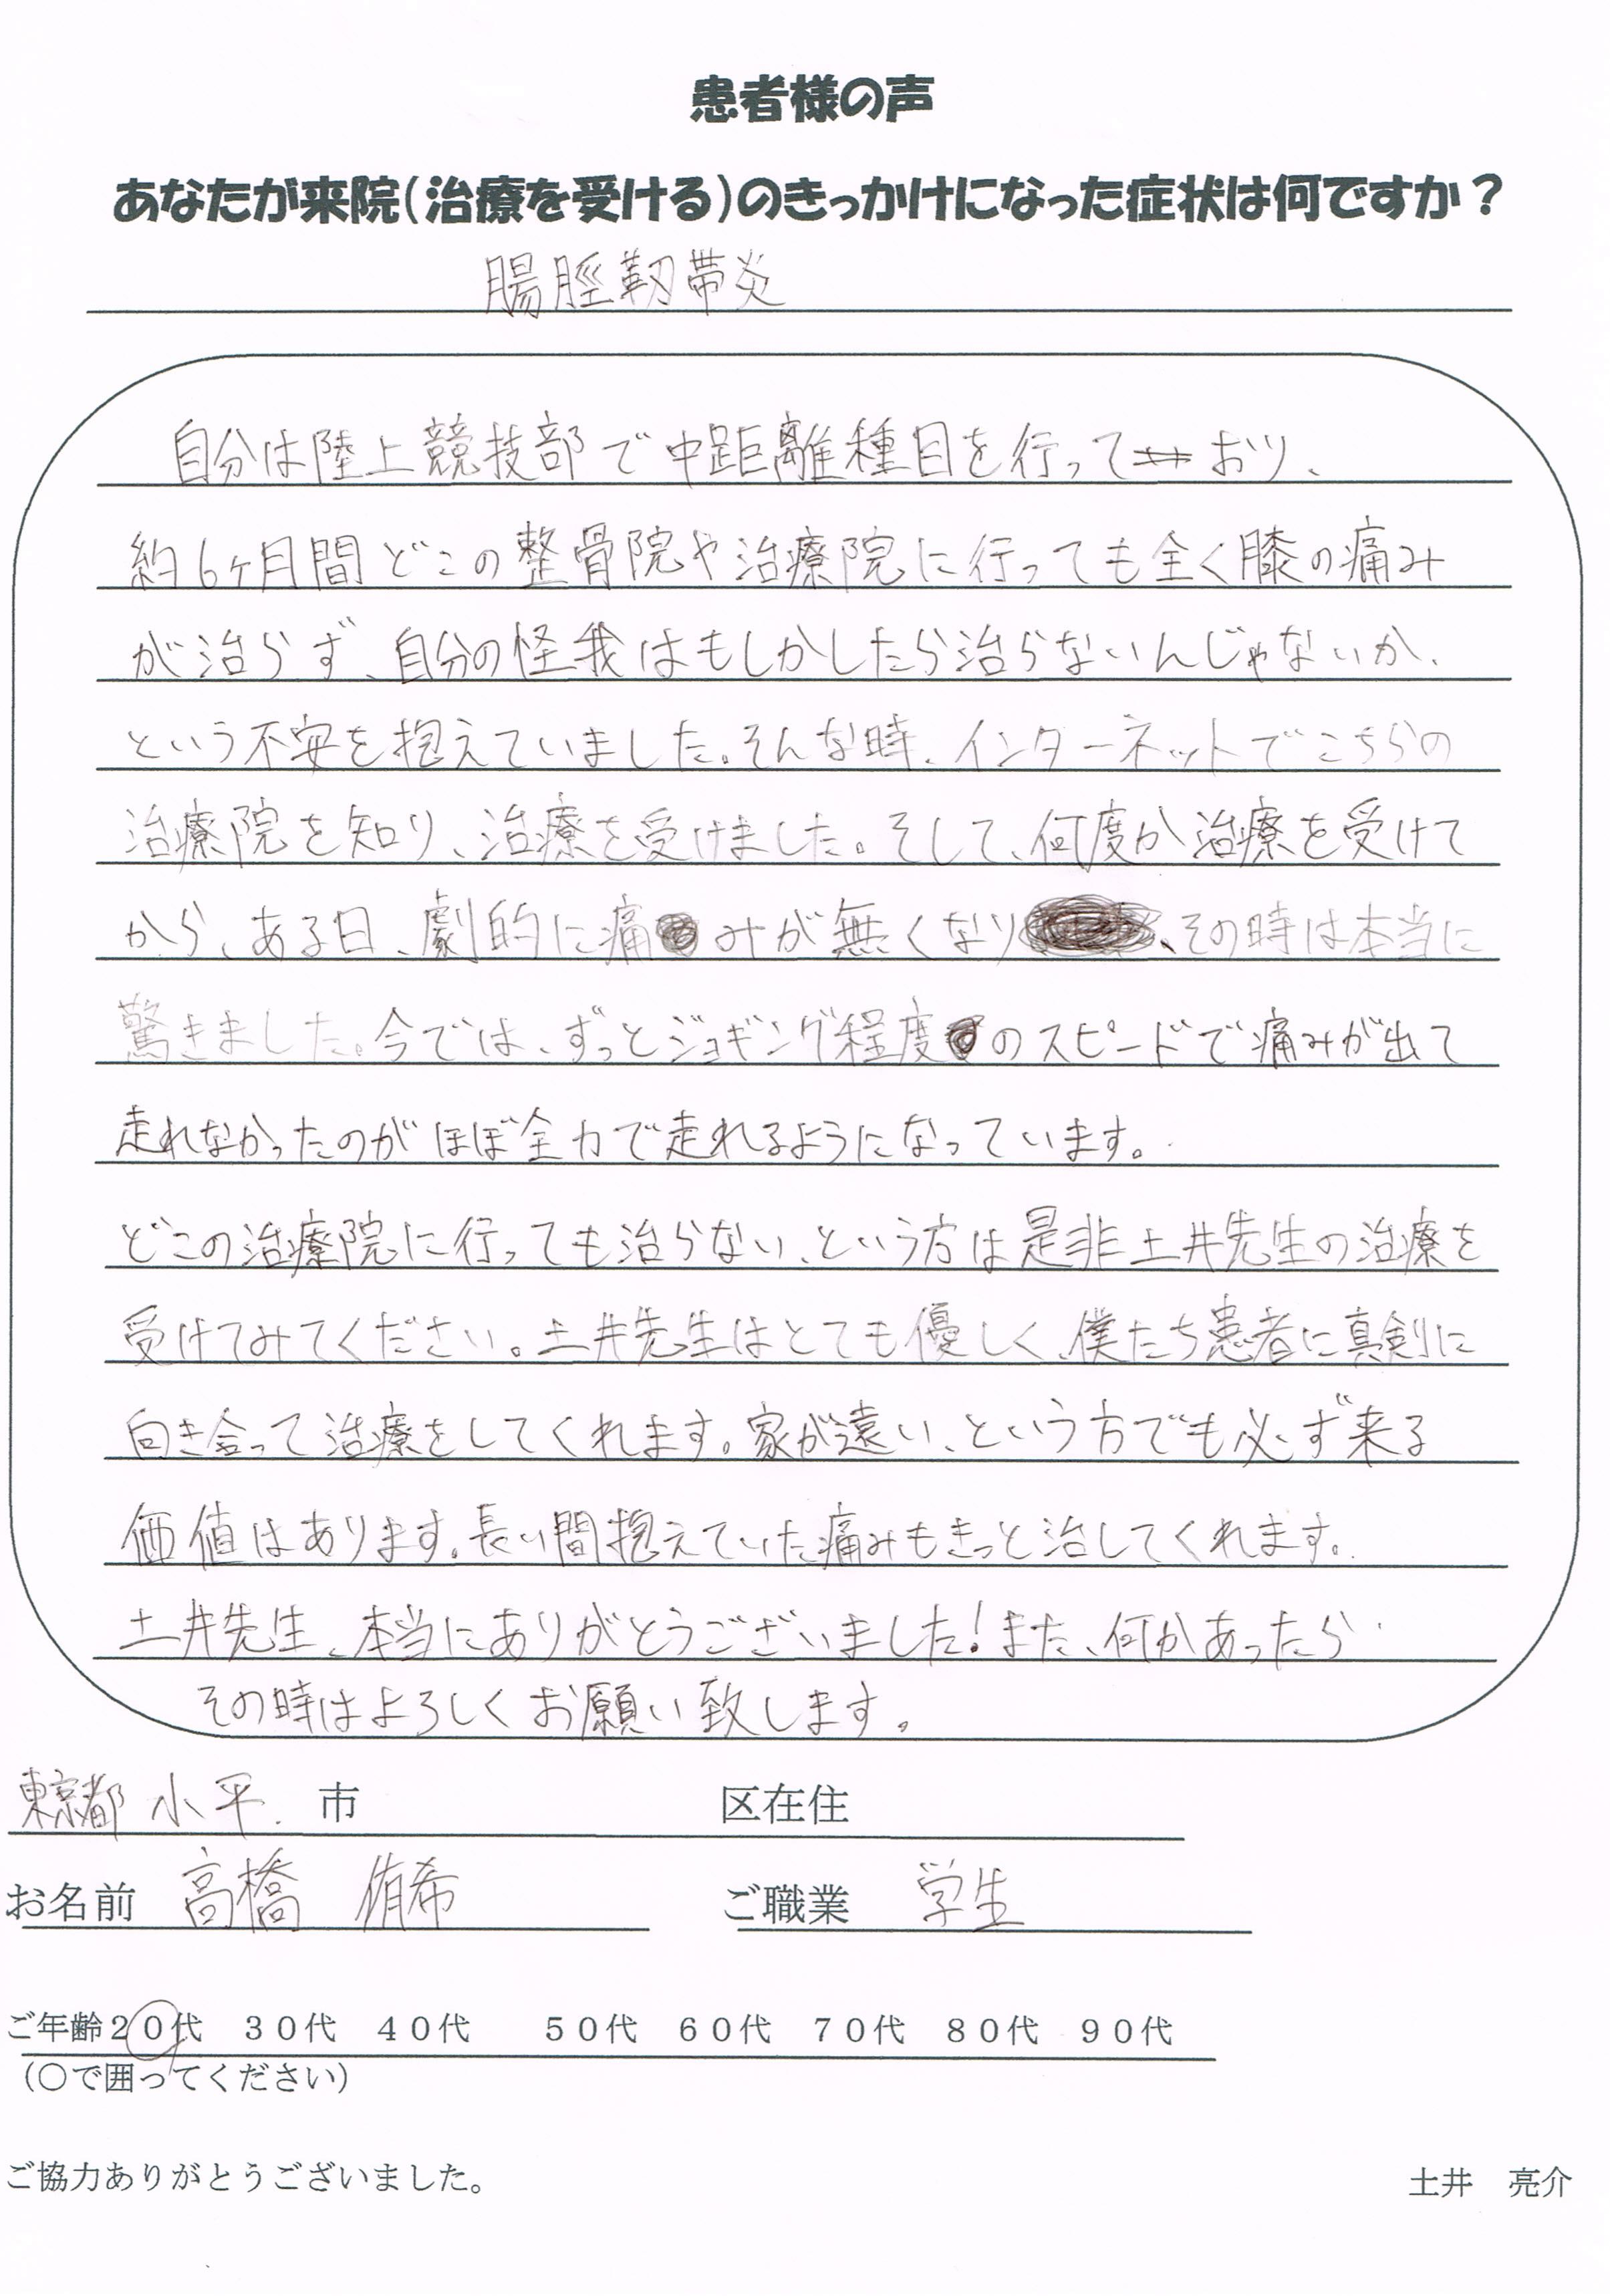 患者様の声
あなたが来院(治療を受ける)のきっかけになった症状は何ですか?
腸脛靭帯炎
自分は陸上競技部で中距離種目を行っており、
約6ヶ月間どこの整骨院や治療院に行っても全く膝の痛み
が治らず、自分の怪我はもしかしたら治らないんじゃないか、
という不安を抱えていました。そんな時、インターネットでこちらの
治療院を知り、治療を受けました。そして、何度か治療を受けて
から、ある日、劇的に痛みが無くなり、その時は本当に
驚きました。今では、ずっとジョギング程度のスピードで痛みが出て
走れなかったのがほぼ全力で走れるようになっています。
どこの治療院に行っても治らない、という方は是非土井先生の治療を
受けてみてください。土井先生はとても優しく、僕たち患者に真剣に
向き合って治療をしてくれます。家が遠い、という方でも必ず来る
価値はあります。長い間抱えていた痛みもきっと治してくれます。
土井先生、本当にありがとうございました!また、何かあったら
その時はよろしくお願い致します。
東京都 小平 市 区在住
お名前 高橋 侑希 ご職業 学生
ご年齢20代 30代 40代 50代 60代 70代 80代 90代
(〇で囲ってください)
ご協力ありがとうございました。 土井 亮介